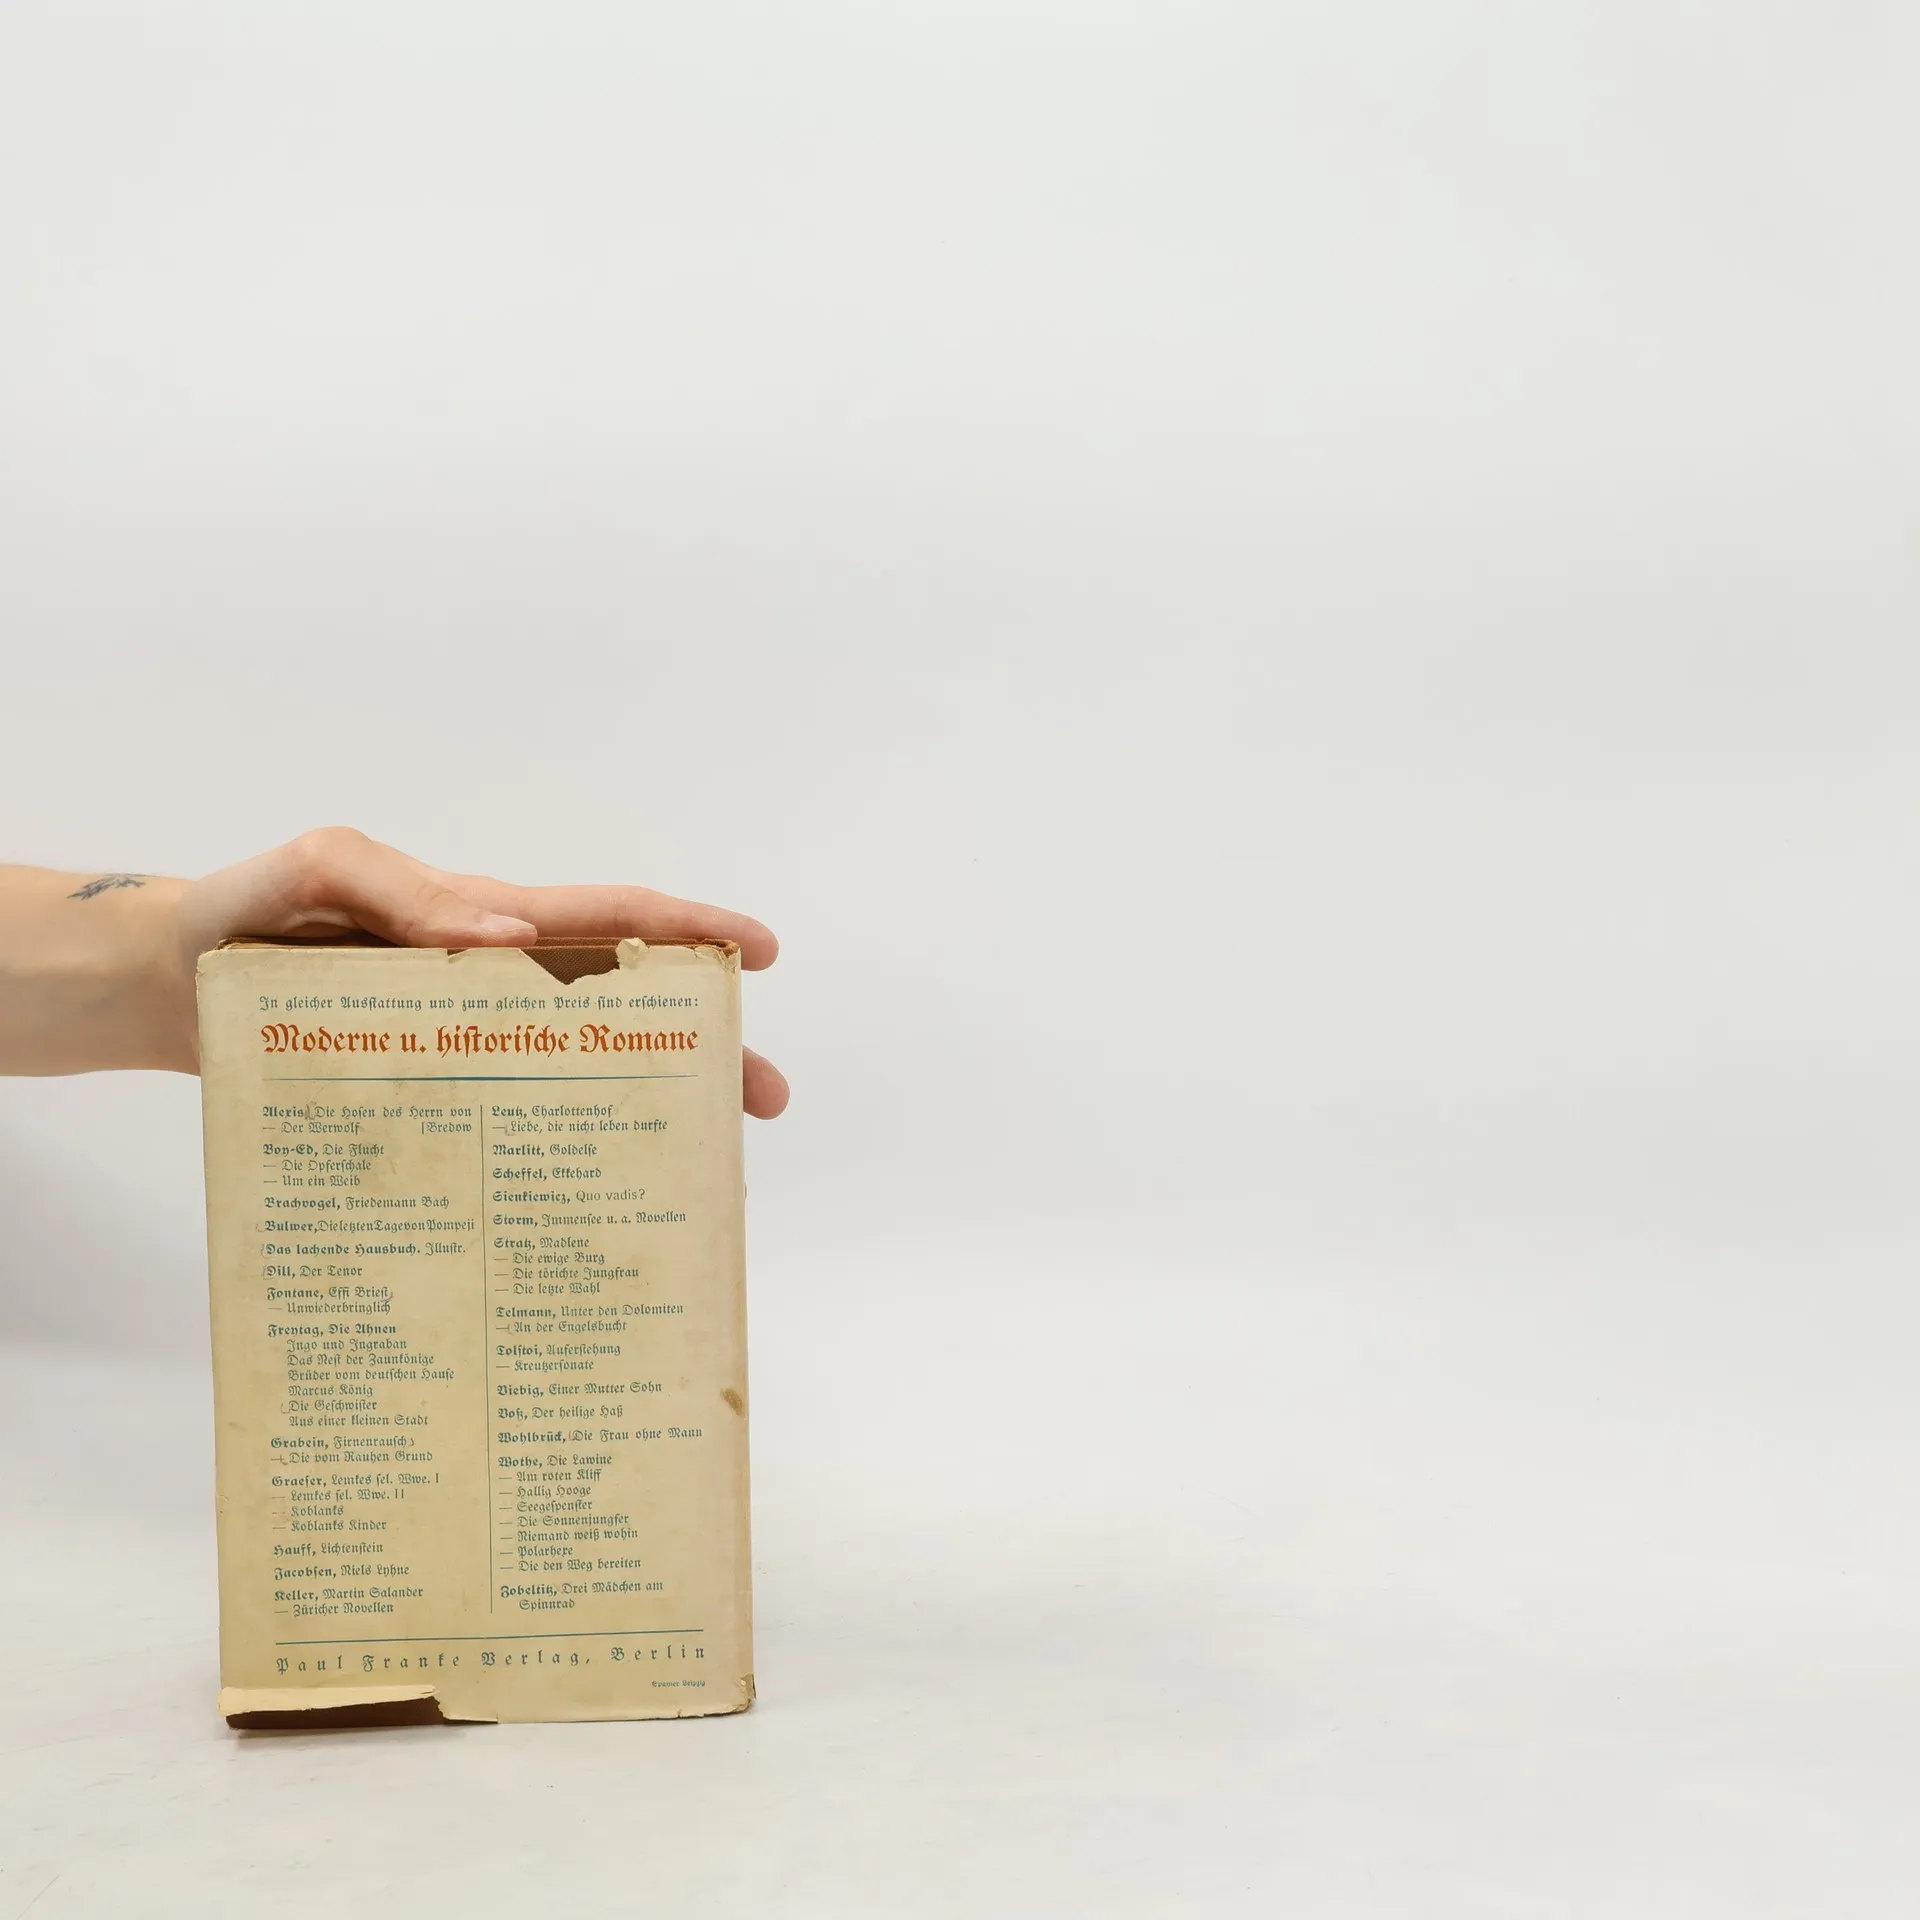 In gleicher Ausstattung und zum gleichen Preis sind erschienen:
Moderne u. historische Romane
Alexis, Die Hosen des Herrn von
— Der Werwolf [Bredow
Boy-Ed, Die Flucht
— Die Opferschale
— Um ein Weib
Brachvogel, Friedemann Bach
Bulwer, Die letzten Tage von Pompeji
Das lachende Hausbuch. Illustr.
Dill, Der Tenor
Fontane, Effi Briest
— Unwiederbringlich
Freytag, Die Ahnen
Ingo und Ingraban
Das Nest der Zaunkönige
Brüder vom deutschen Hause
Marcus König
Die Geschwister
Aus einer kleinen Stadt
Grabein, Firnenrausch
— Die vom Rauhen Grund
Graeser, Lemkes sel. Wwe. I
— Lemkes sel. Wwe. II
— Koblanks
— Koblanks Kinder
Hauff, Lichtenstein
Jacobsen, Niels Lyhne
Keller, Martin Salander
— Züricher Novellen
Leutz, Charlottenhof
— Liebe, die nicht leben durfte
Marlitt, Goldelse
Scheffel, Ekkehard
Sienkiewicz, Quo vadis?
Storm, Immensee u. a. Novellen
Stratz, Madlene
— Die ewige Burg
— Die törichte Jungfrau
— Die letzte Wahl
Telmann, Unter den Dolomiten
— An der Engelsbucht
Tolstoi, Auferstehung
— Kreutzersonate
Viebig, Einer Mutter Sohn
Voß, Der heilige Haß
Wohlbrück, Die Frau ohne Mann
Wothe, Die Lawine
— Am roten Kliff
— Hallig Hooge
— Seegespenster
— Die Sonnenjungfer
— Niemand weiß wohin
— Polarhexe
— Die den Weg bereiten
Zobeltitz, Drei Mädchen am
Spinnrad
Paul Franke Verlag, Berlin
Spamer Leipzig